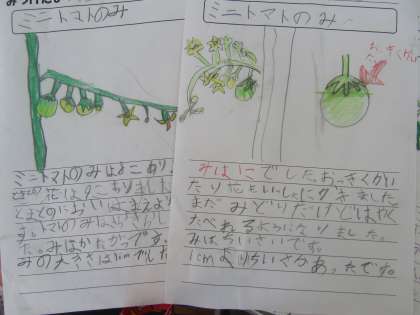 ミニトマトのみ
ミニトマトのみは4こあり、
花は4こありました
とまとのにおいはまえより
す。トマトのみは
た。みはかたかったです。
みの大きさは1cmでした
ミニトマトのみ
おっきくかい
た
みはいこでした。おっきくかい
たり花といっしょにかきました
まだみどりだけどはやく
たべれるようになりました。
みはちいさいです。
1cmよりちいさかあったです。